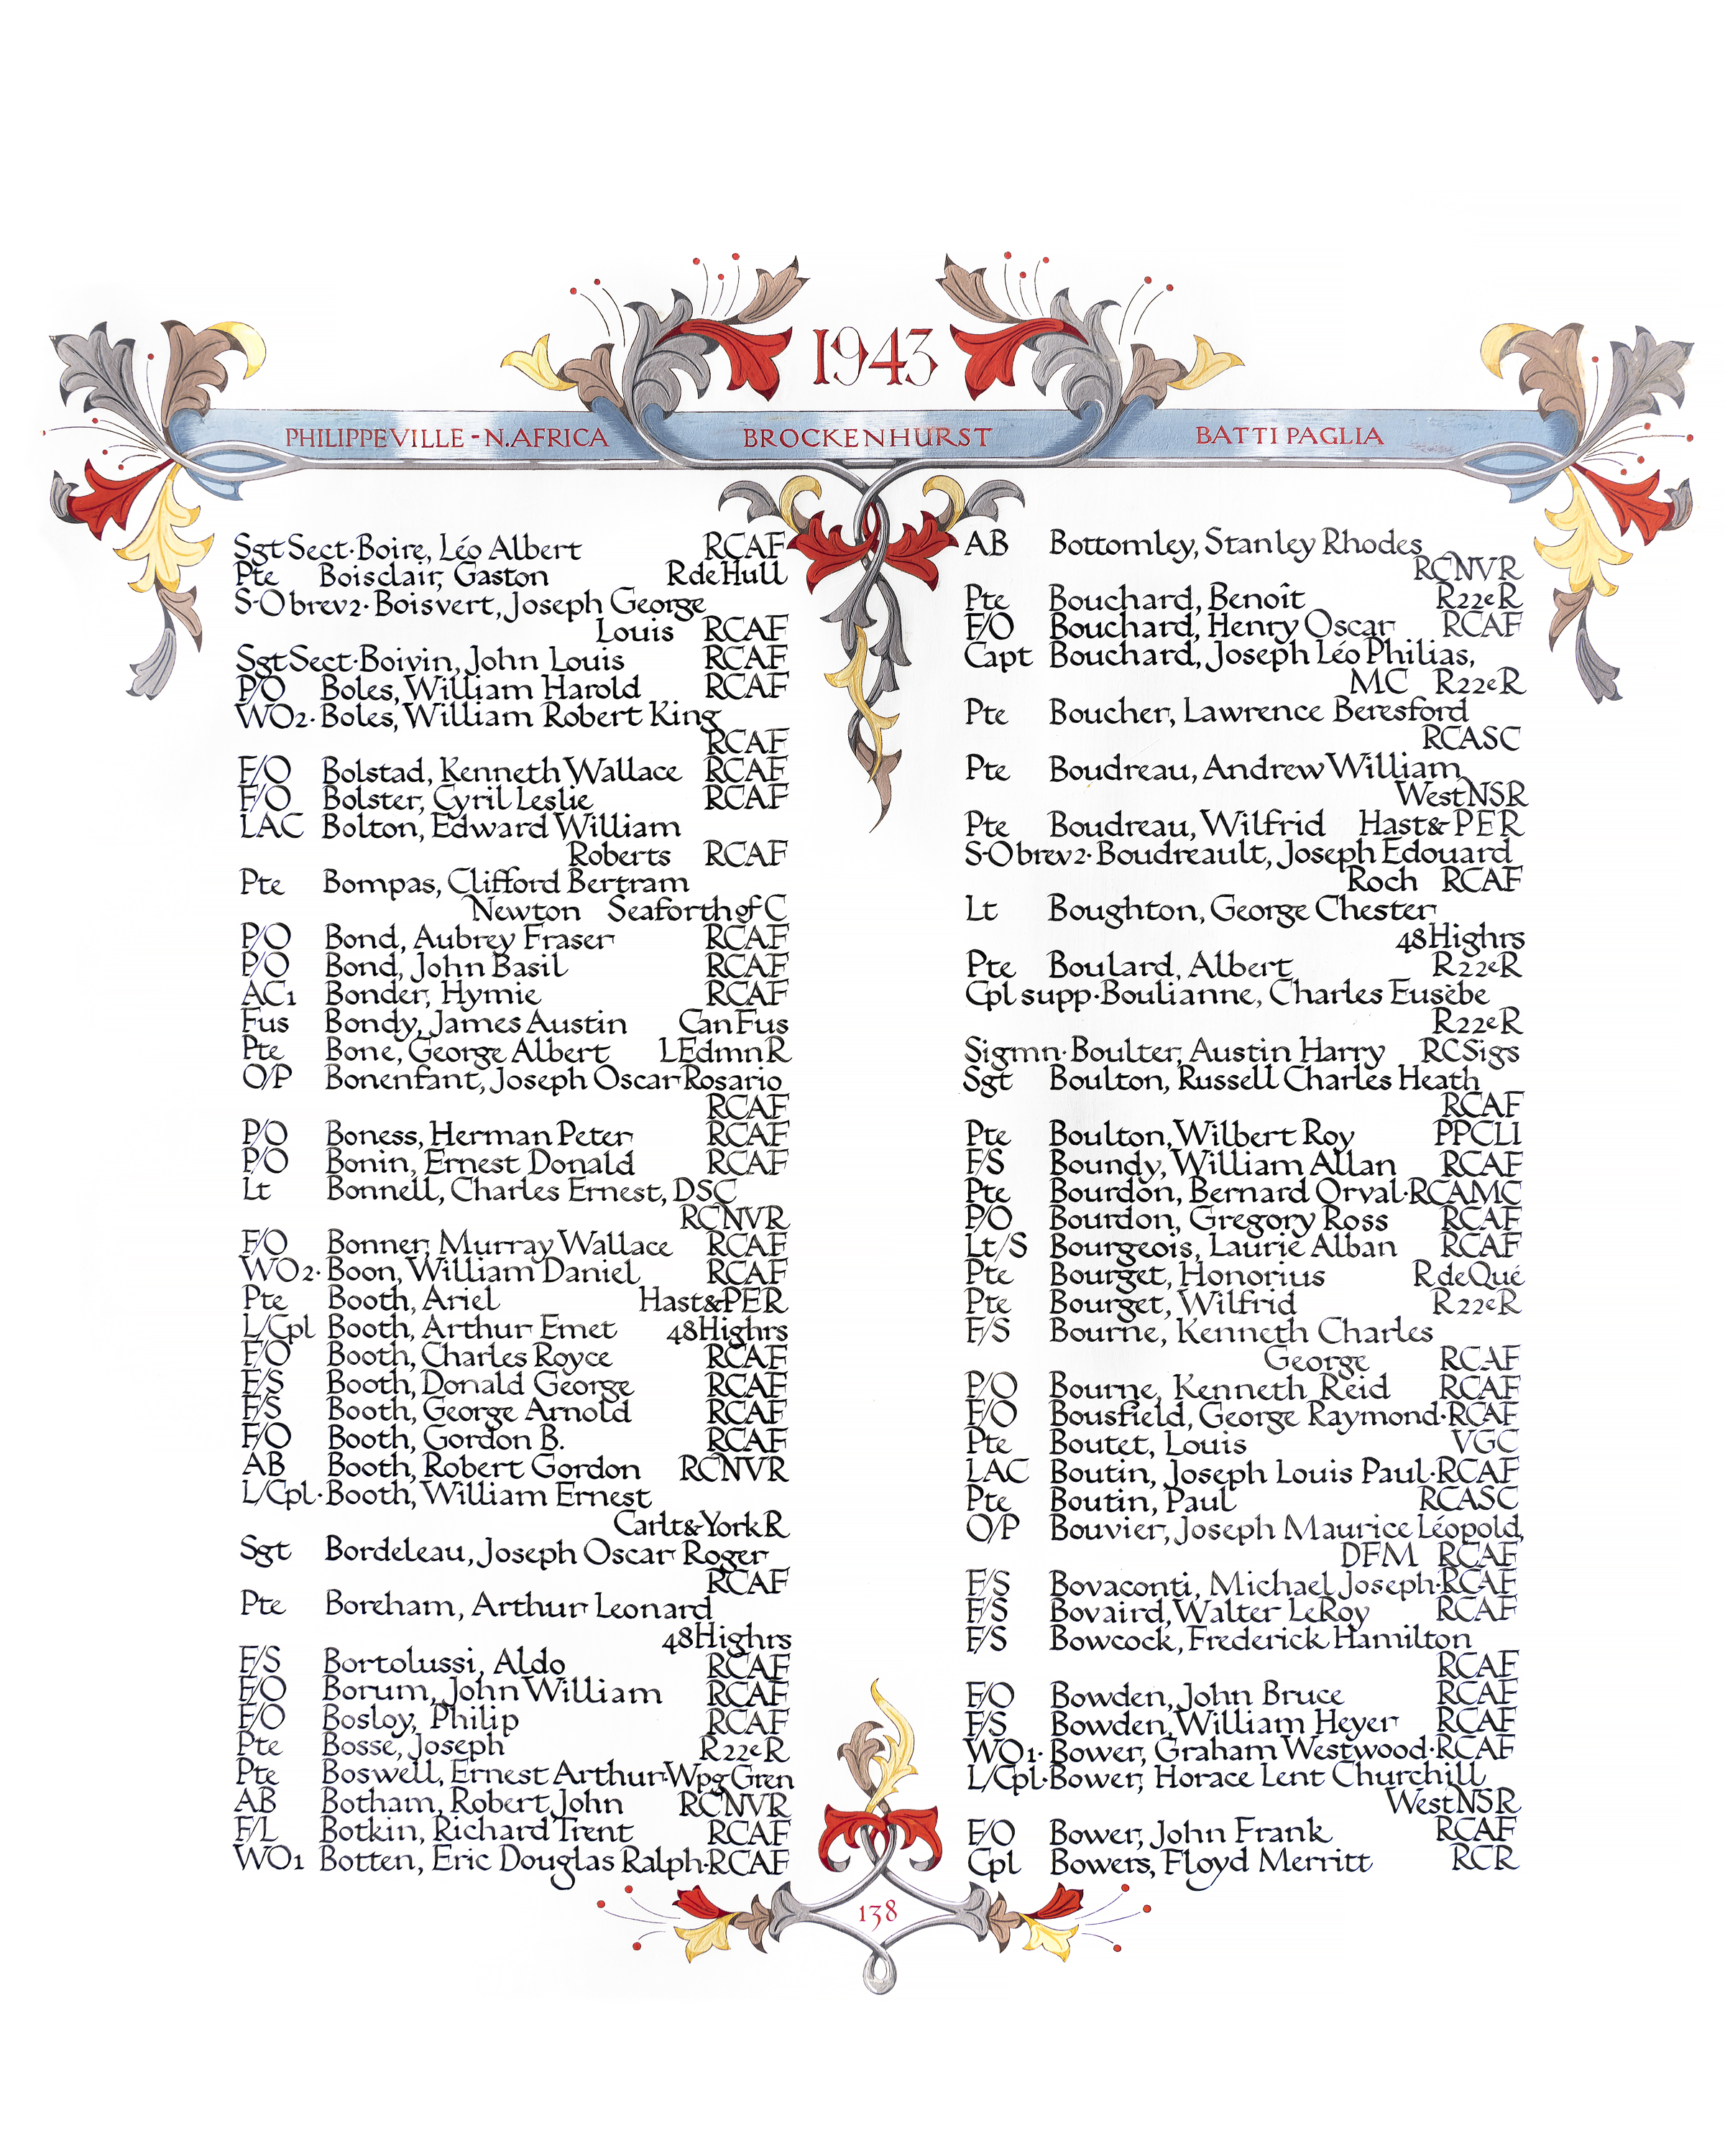 1943
PHILIPPEVILLE-N.AFRICA BROCKENHURST BATTIPAGLIA
Sgt Sect·Boire, Léo Albert RCAF
Pte Boisclair, Gaston R de Hull
S-O brev2·Boisvert, Joseph George
Louis RCAF
Sgt Sect·Boivin, John Louis RCAF
P/O Boles, William Harold RCAF
WO2·Boles, William Robert King
RCAF
F/O Bolstad, Kenneth Wallace RCAF
F/O Bolster, Cyril Leslie RCAF
LAC Bolton, Edward William
Roberts RCAF
Pte Bompas, Clifford Bertram
Newton Seaforth of C
P/O Bond, Aubrey Fraser RCAF
P/O Bond, John Basil RCAF
AC1 Bonder, Hymie RCAF
Fus Bondy, James Austin Can Fus
Pte Bone, George Albert L Edmn R
O/P Bonenfant, Joseph Oscar Rosario
RCAF
P/O Boness, Herman Peter RCAF
P/O Bonin, Ernest Donald RCAF
Lt Bonnell, Charles Ernest, DSC
RCNVR
F/O Bonner, Murray Wallace RCAF
WO2·Boon, William Daniel RCAF
Pte Booth, Ariel Hast & PER
L/Cpl Booth, Arthur Emet 48 Highrs
F/O Booth, Charles Royce RCAF
F/S Booth, Donald George RCAF
F/S Booth, George Arnold RCAF
F/O Booth, Gordon B. RCAF
AB Booth, Robert Gordon RCNVR
L/Cpl·Booth, William Ernest
Carlt & York R
Sgt Bordeleau, Joseph Oscar Roger
RCAF
Pte Boreham, Arthur Leonard
48 Highrs
F/S Bortolussi, Aldo RCAF
F/O Borum, John William RCAF
F/O Bosloy, Philip RCAF
Pte Bosse, Joseph R22eR
Pte Boswell, Ernest Arthur·Wpg Gren
AB Botham, Robert John RCNVR
F/L Botkin, Richard Trent RCAF
WO1 Botten, Eric Douglas Ralph·RCAF
AB Bottomley, Stanley Rhodes
RCNVR
Pte Bouchard, Benoît R22eR
F/O Bouchard, Henry Oscar RCAF
Capt Bouchard, Joseph Léo Philias,
MC R22eR
Pte Boucher, Lawrence Beresford
RCASC
Pte Boudreau, Andrew William
West NSR
Pte Boudreau, Wilfrid Hast & PER
S-O brev2·Boudreault, Joseph Edouard
Roch RCAF
Lt Boughton, George Chester
48 Highrs
Pte Boulard, Albert R22eR
Cpl supp·Boulianne, Charles Eusèbe
R22eR
Sigmn·Boulter, Austin Harry RC Sigs
Sgt Boulton, Russell Charles Heath
RCAF
Pte Boulton, Wilbert Roy PPCLI
F/S Boundy, William Allan RCAF
Pte Bourdon, Bernard Orval·RCAMC
P/O Bourdon, Gregory Ross RCAF
Lt/S Bourgeois, Laurie Alban RCAF
Pte Bourget, Honorius R de Qué
Pte Bourget, Wilfrid R22eR
F/S Bourne, Kenneth Charles
George RCAF
P/O Bourne, Kenneth Reid RCAF
F/O Bousfield, George Raymond·RCAF
Pte Boutet, Louis VGC
LAC Boutin, Joseph Louis Paul·RCAF
Pte Boutin, Paul RCASC
O/P Bouvier, Joseph Maurice Léopold,
DFM RCAF
F/S Bovaconti, Michael Joseph·RCAF
F/S Bovaird, Walter LeRoy RCAF
F/S Bowcock, Frederick Hamilton
RCAF
F/O Bowden, John Bruce RCAF
F/S Bowden, William Heyer RCAF
WO1·Bower, Graham Westwood·RCAF
L/Cpl·Bower, Horace Lent Churchill
West NSR
F/O Bower, John Frank RCAF
Cpl Bowers, Floyd Merritt RCR
138